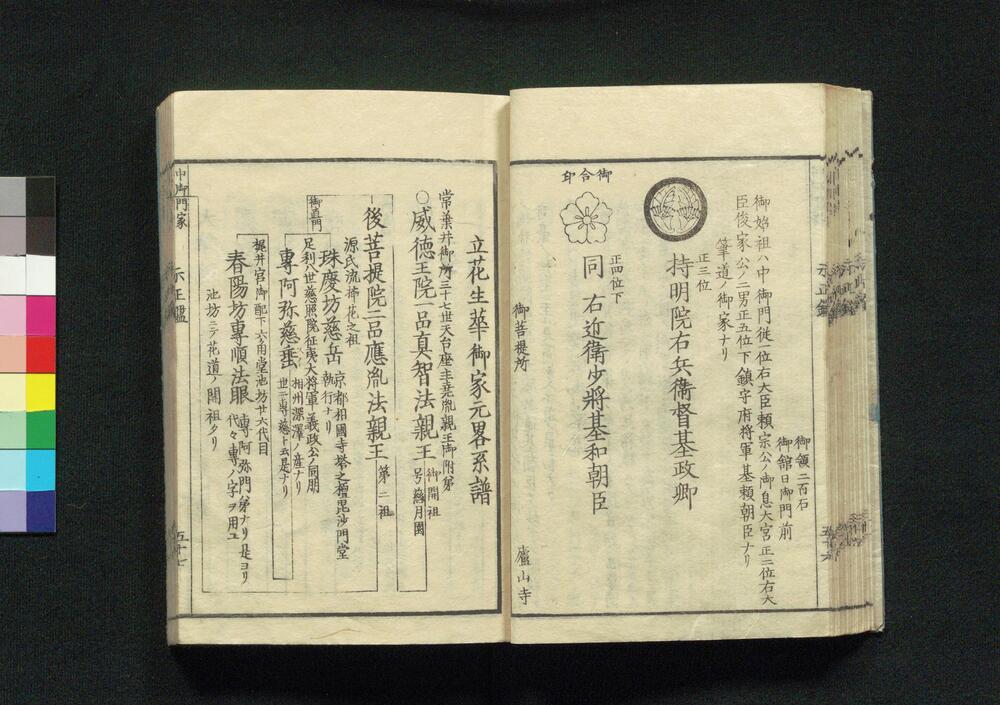 御領二百石
御館日御門前
御始祖ハ中御門従一位右大臣頼宗公ノ御息大宮正二位右大
臣俊家公ノ二男正五位下鎮守府将軍基頼朝臣ナリ
筆道ノ御家ナリ
正三位
持明院右兵衛督基政卿
御合印
正四位下
同右近衛少將基和朝臣
御菩提所
廬山寺
立花生華御家元畧系譜
常葉井御所三十七世天台座主尭胤親王御附弟
○威徳王院一品真智法親王
御開祖
号蘂月園
後菩提院二品應胤法親王
第二祖
源氏流挿花之祖
珠慶坊慈岳
京都相國寺塔之檀毘沙門堂
執行ナリ
御直門
足利八世慈照院征夷大将軍義政公ノ同朋
專阿弥慈垂
相州深澤ノ産ナリ
世ニ專慈ト云是ナリ
梶井宮御配下六角堂池坊廿六代目
春陽坊專順法眼
專阿弥門弟ナリ是ヨリ
代々專ノ字ヲ用ユ
池坊ニテ花道ノ開祖タリ
中御門家
五十七